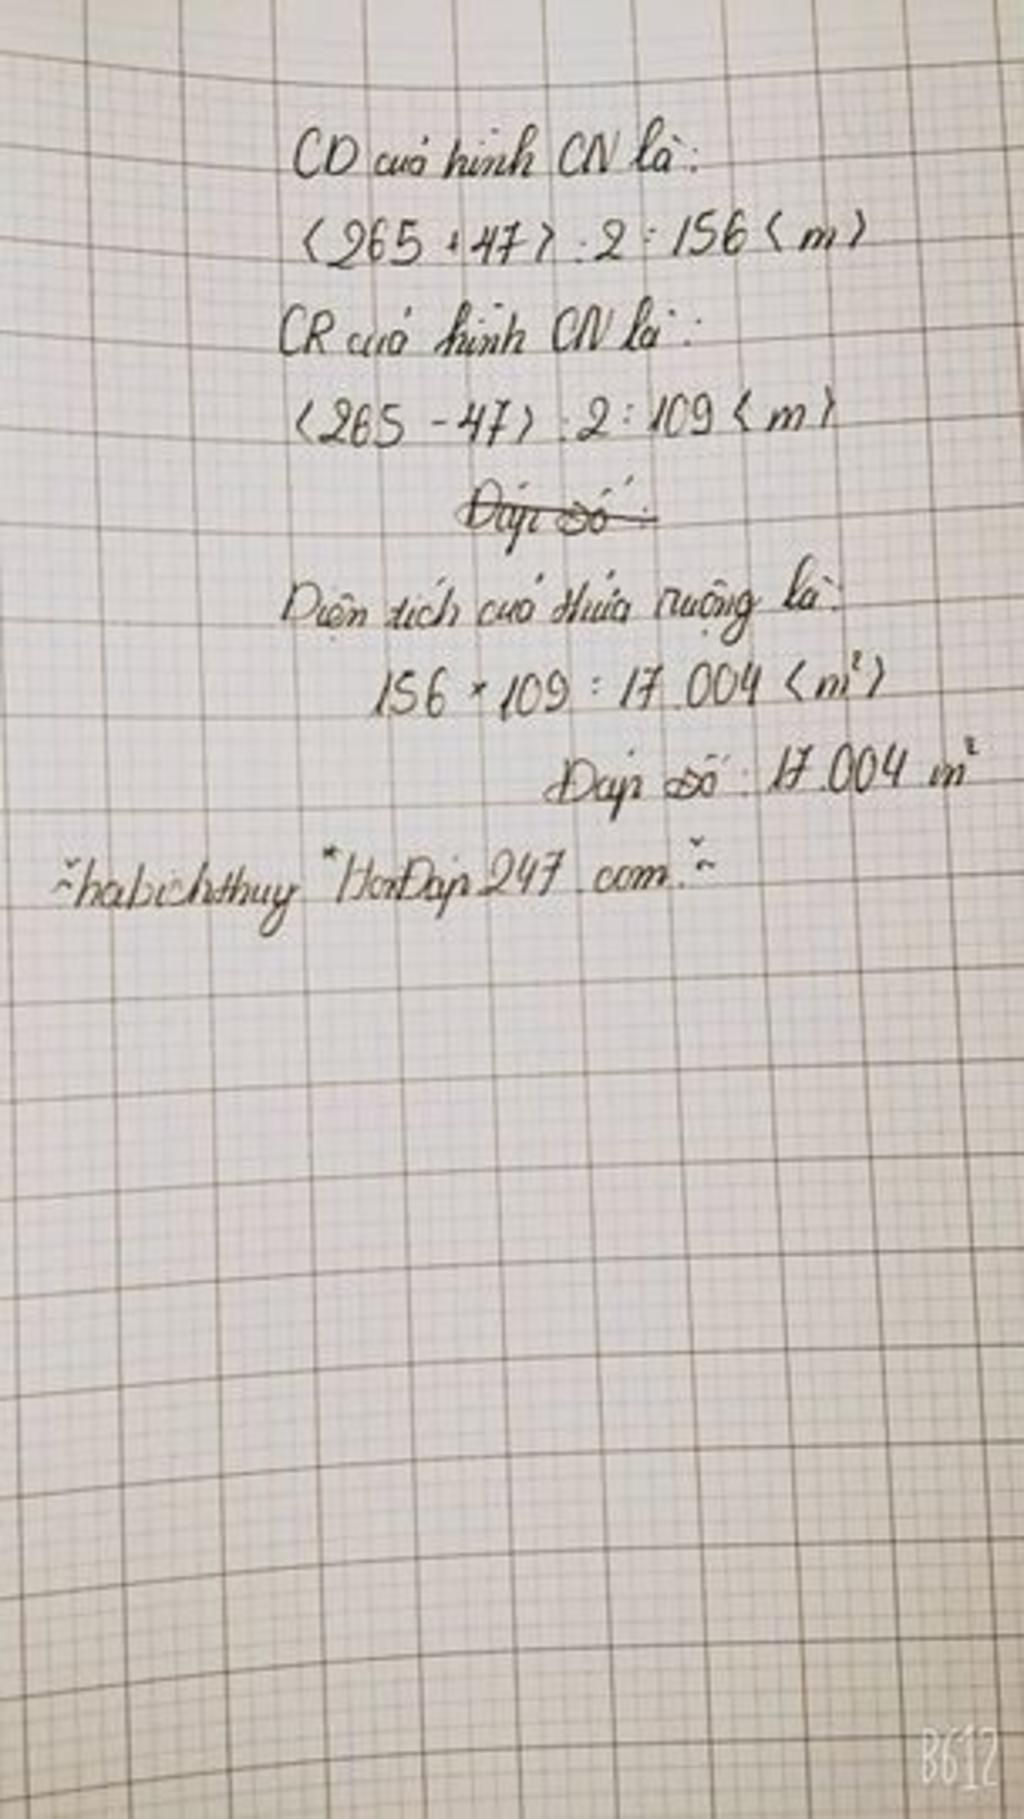 CD của hình CN là:
(265 + 47) : 2 = 156 (m)
CR của hình CN là:
(265 - 47) : 2 = 109 (m)
Đáp số:
Diện tích của thửa ruộng là:
156 * 109 = 17.004 (m²)
Đáp số: 17.004 m²
~habichthuy *HoiDap247.com.~
B612